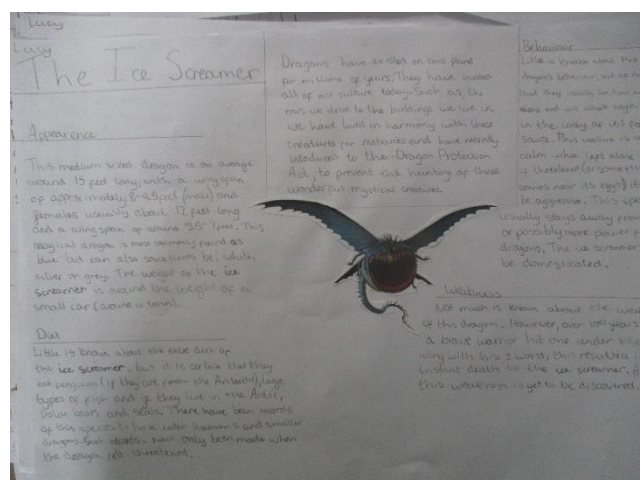 Lucy
Lucy
The Ice Screamer
Appearence
This medium sized dragon is on average
around 15 feet long, with a wingspan
of approximately 8-9.5 feet (male) and
females usually about 12 feet long
and a wing span of around
magical dragon is most commonly found as
blue but can also sometimes be: white,
silver or grey. The weight of the ice
screamer is around the weight of a
small car (around a tonn).
Diet
Little is known about the exact diet of
the ice screamer, but it is certain that they
eat penguins (if they come from the Antartic), large
types of fish and if they live in the Artic,
Polar bears and seals. There have been records
of this species to have eaten humans and smaller
dragons. Such records have only been made when
the dragon felt threatened.
Dragons have existed on this planet
for millions of years. They have
all of our culture today. Such as, the
cars we drive to the buildings we live in,
we have lived in harmony with these
creatures for centuries and have recently
intoduced to the Dragon Protection
Act, to prevent the hunting of these
wonderful, mystical creatures.
Behaviour
Little is known about this
dragons behaviour, but we do
that they usually live
alone and will attack
in the way of its
source. This creature is
calm when left alone
if threatened (or
comes near its eggs) it
be aggressive. This
usually stays away from
or possibly more power
dragons. The ice screamer
be domesticated.
Weakness
Not much is known about the
of this dragon. However, over 100 years
a brave warrior hit one under the
wing with his sword, this resulted
instant death to the ice screamer.
this weakness is yet to be discovered.